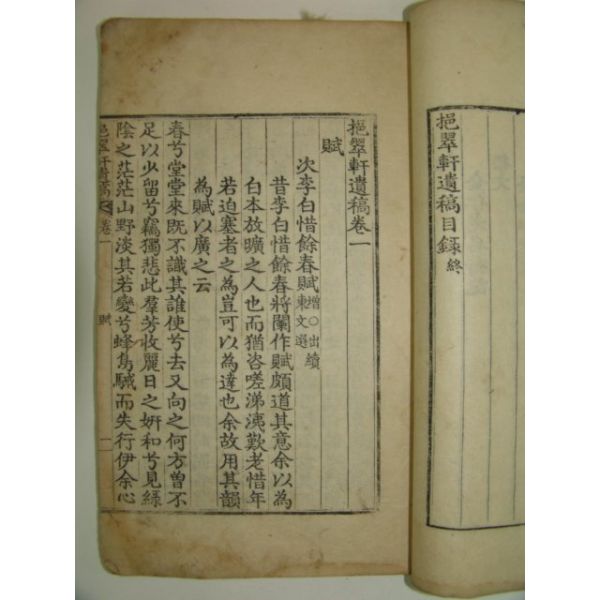 挹翠軒遺稿目錄終
挹翠軒遺稿卷一
賦
次李白惜餘春賦增○出續東文選
昔李白惜餘春將闌作賦頗道其意余以為
白本放曠之人也而猶咨嗟涕洟歎老惜年
若迫塞者之為豈可以為達也余故用其韻
為賦以廣之云
春兮堂堂來旣不識其誰使兮去又向之何方曾不
足以少留兮竊獨悲此羣芳收麗日之姸和兮見綠
陰之茫茫山野淡其若變兮蜂鳥駴而失行伊余心
挹翠軒遺稿 卷一 賦 一